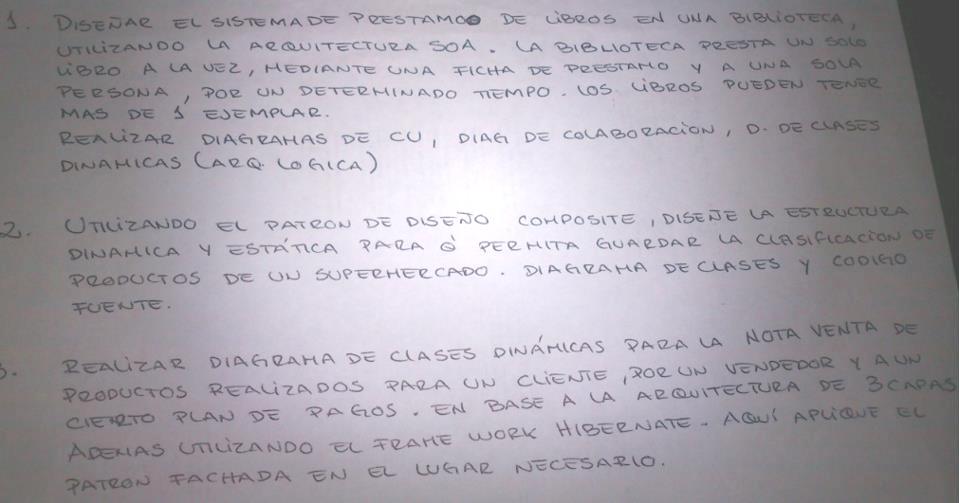 1. DISEÑAR EL SISTEMA DE PRESTAMO DE LIBROS EN UNA BIBLIOTECA,
UTILIZANDO LA ARQUITECTURA SOA. LA BIBLIOTECA PRESTA UN SOLO
LIBRO A LA VEZ, MEDIANTE UNA FICHA DE PRESTAMO Y A UNA SOLA
PERSONA, POR UN DETERMINADO TIEMPO. LOS LIBROS PUEDEN TENER
MAS DE 1 EJEMPLAR.
REALIZAR DIAGRAMAS DE CU, DIAG DE COLABORACION, D. DE CLASES
DINAMICAS (ARQ. LOGICA)
2. UTILIZANDO EL PATRON DE DISEÑO COMPOSITE, DISEÑE LA ESTRUCTURA
DINAMICA Y ESTÁTICA PARA Q' PERMITA GUARDAR LA CLASIFICACION DE
PRODUCTOS DE UN SUPERMERCADO. DIAGRAMA DE CLASES Y CODIGO
FUENTE.
3. REALIZAR DIAGRAMA DE CLASES DINÁMICAS PARA LA NOTA VENTA DE
PRODUCTOS REALIZADOS PARA UN CLIENTE, POR UN VENDEDOR Y A UN
CIERTO PLAN DE PAGOS. EN BASE A LA ARQUITECTURA DE 3 CAPAS
ADEMAS UTILIZANDO EL FRAME WORK HIBERNATE. AQUÍ APLIQUE EL
PATRON FACHADA EN EL LUGAR NECESARIO.